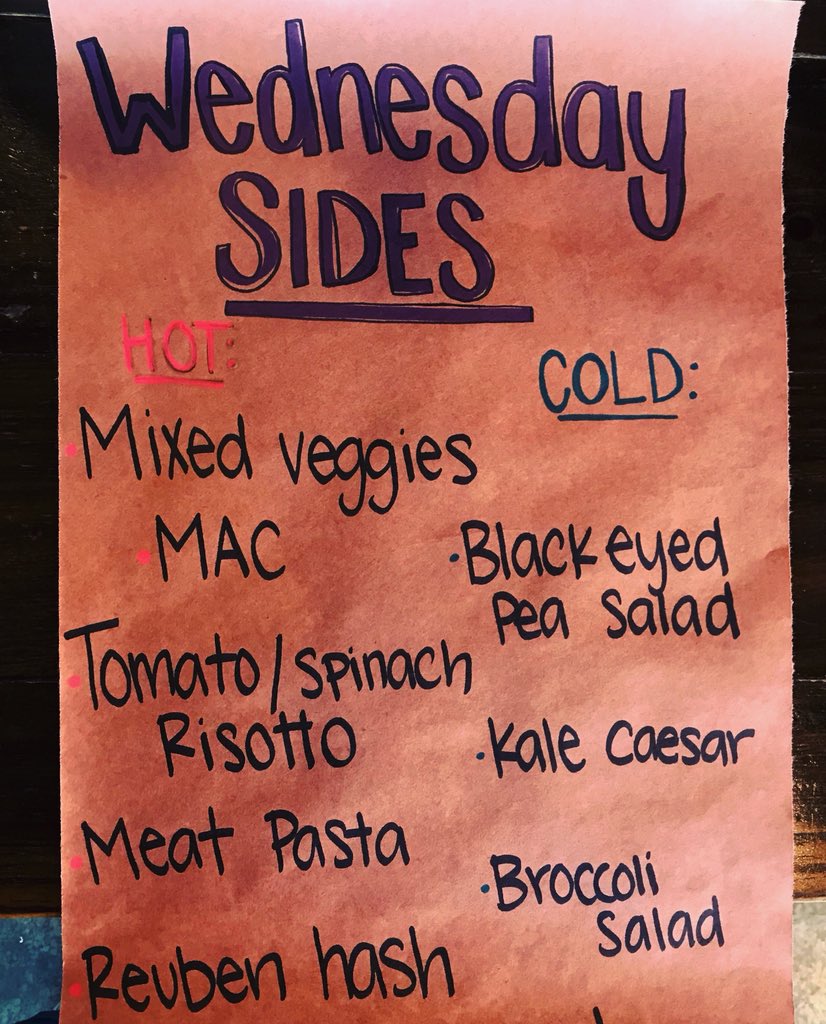 Wednesday
SIDES
HOT:
• Mixed veggies
• MAC
• Tomato/spinach
Risotto
• Meat Pasta
• Reuben hash
COLD:
• Black eyed
Pea Salad
• Kale Caesar
• Broccoli
Salad